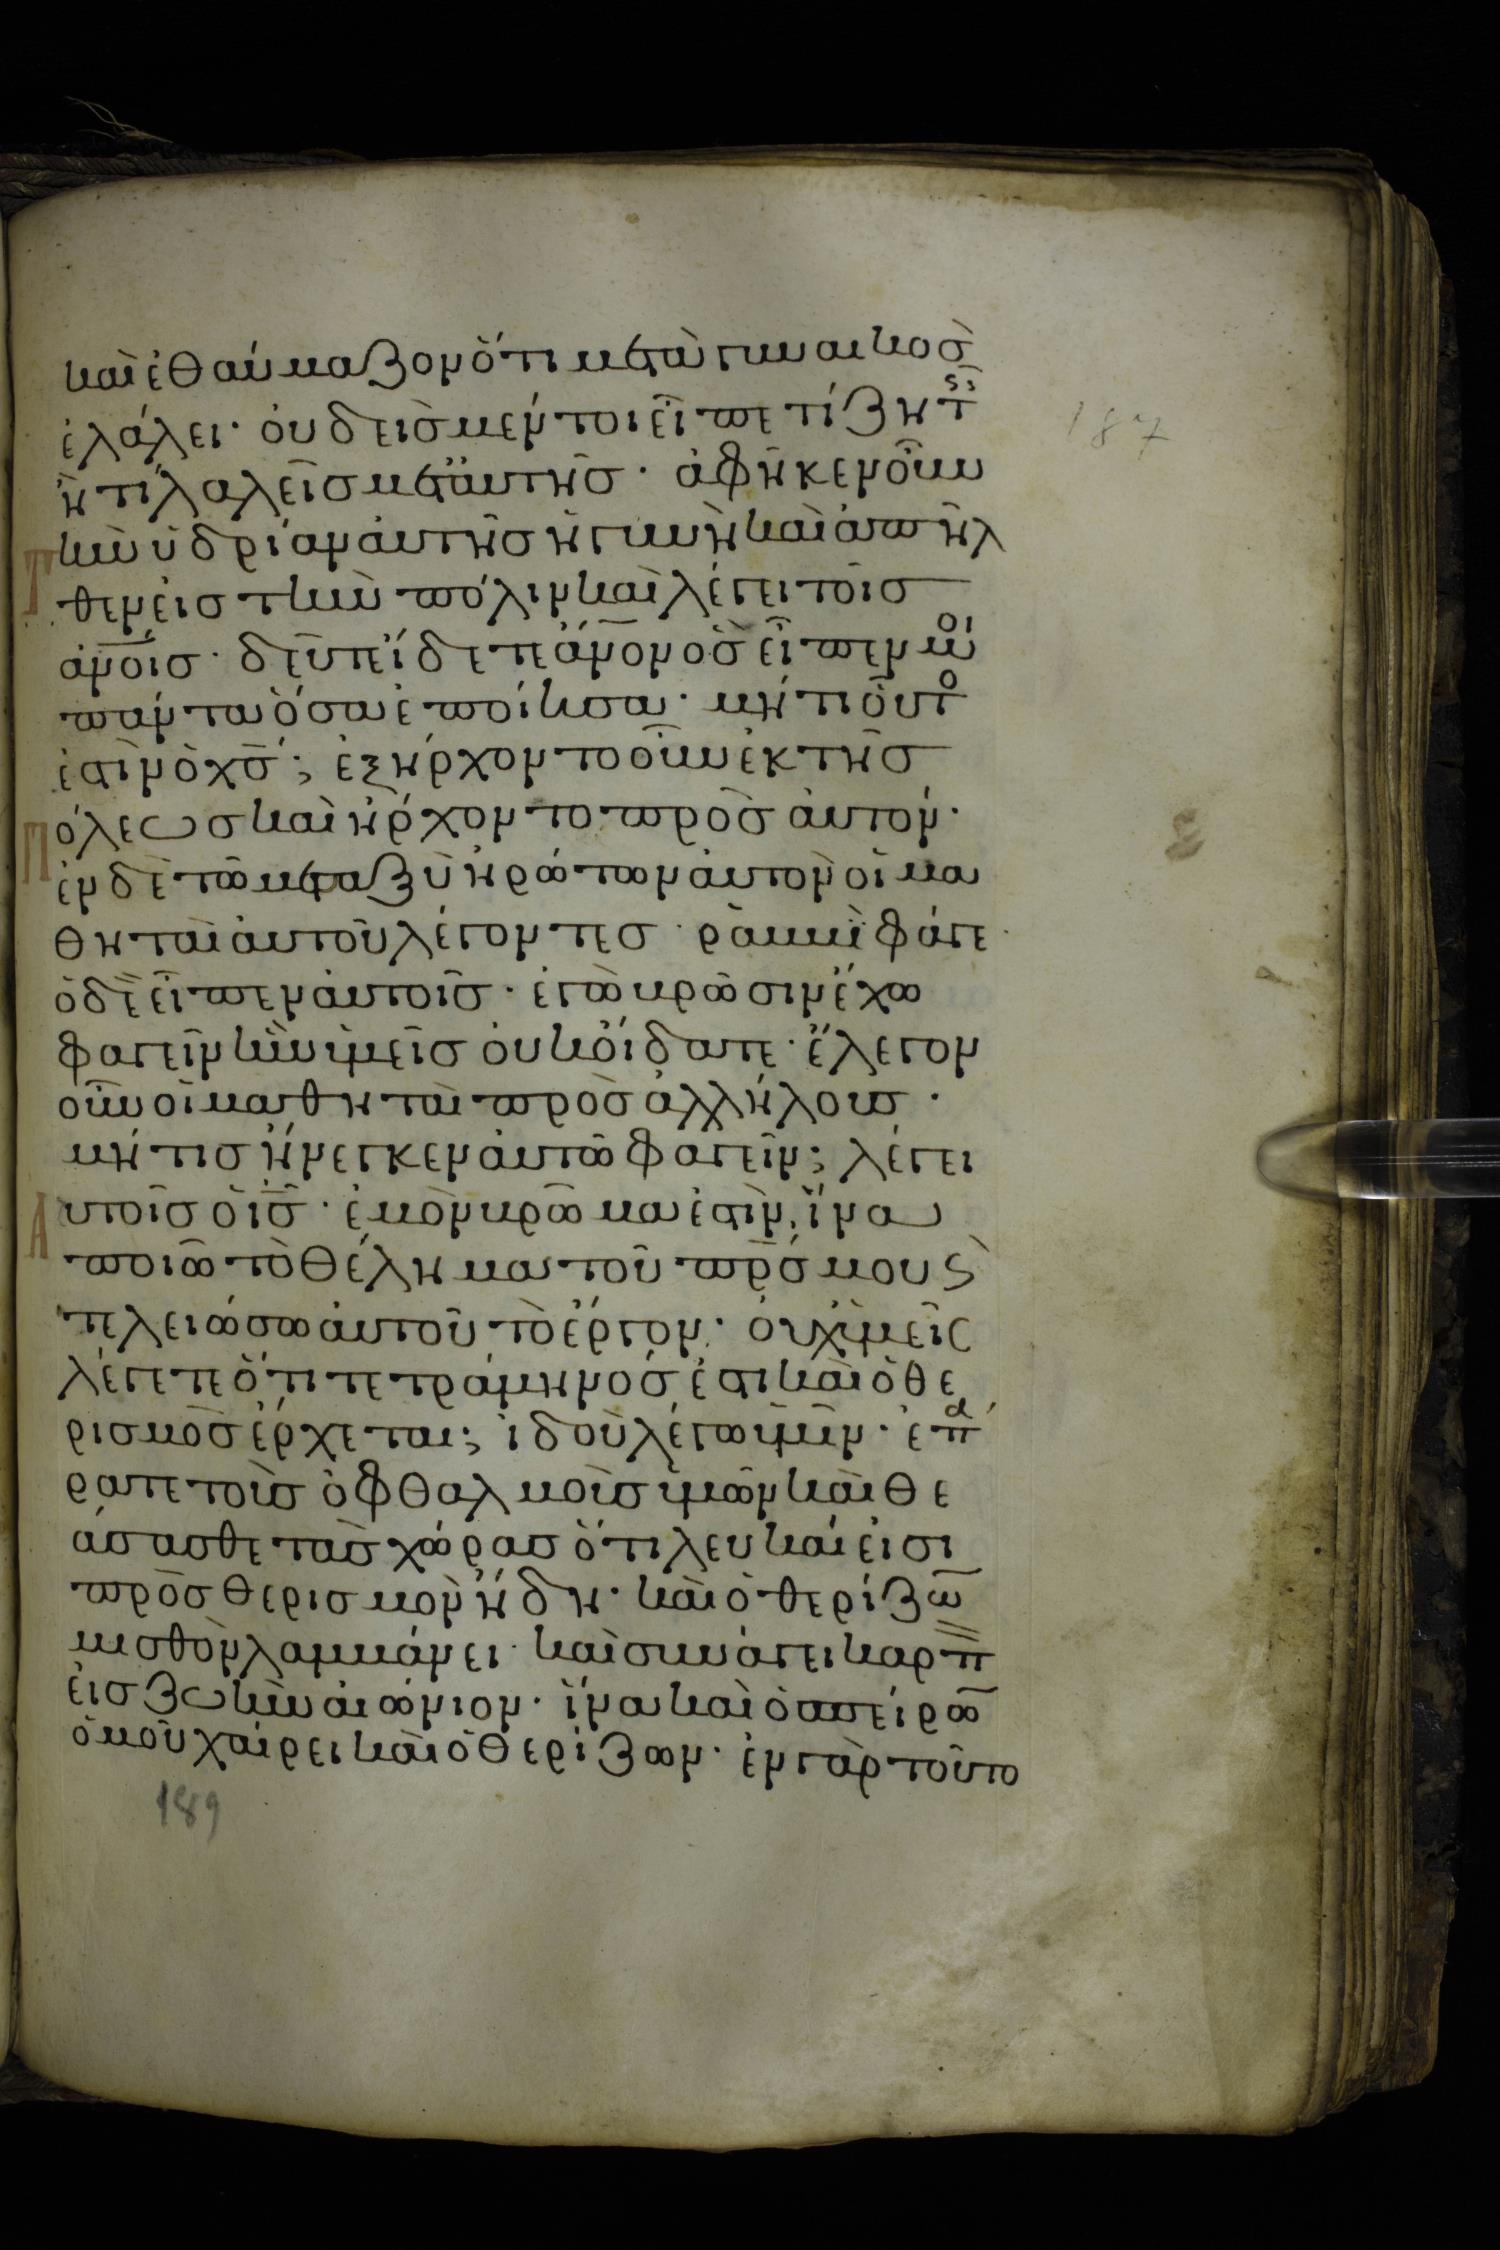 καὶ ἐθαύμαζον ὅτι μετὰ γυναικὸσ
ἐλάλει· οὐδεὶσ μέντοι εἶπε τί ζητεῖσ
ἢ τί λαλεῖσ μετ' αὐτῆσ· ἀφῆκεν οὖν
τὴν ὑδρίαν αὐτῆσ ἡ γυνὴ καὶ ἀπῆλ
θεν εἰσ τὴν πόλιν καὶ λέγει τοῖσ
ἀνοισ· δεῦτε ἴδετε ἄνον ὃσ εἶπεν μοι
πάντα ὅσα ἐποίησα· μήτι οὗτο
ἐστὶν ὁ χσ; ἐξήρχοντο οὖν ἐκ τῆσ
Πόλεωσ καὶ ἤρχοντο πρὸσ αὐτόν·
ἐν δὲ τῶ μεταξὺ ἠρώτων αὐτὸν οἱ μα
θηταὶ αὐτοῦ λέγοντεσ· ῥαββὶ φάγε·
ὁ δὲ εἶπεν αὐτοῖσ· ἐγὼ βρῶσιν ἔχω
φαγεῖν ἣν ὑμεῖσ οὐκ οἴδατε· ἔλεγον
οὖν οἱ μαθηταὶ πρὸσ ἀλλήλουσ·
μήτισ ἤνεγκεν αὐτῶ φαγεῖν; λέγει
Αὐτοῖσ ὁ ισ· ἐμὸν βρῶμα ἐστὶν, ἵνα
ποιῶ τὸ θέλημα τοῦ πρσ μου ϛ
τελειώσω αὐτοῦ τὸ ἔργον· οὐχ ὑμεῖσ
λέγετε ὅτι τετράμηνόσ ἐστι καὶ ὁ θε
ρισμὸσ ἔρχεται; ἰδοὺ λέγω ὑμῖν· ἐπά
ρατε τοὺσ ὀφθαλμοὺσ ὑμῶν καὶ θε
άσασθε τὰσ χώρασ ὅτι λευκαί εἰσι
πρὸσ θερισμὸν ἤδη· καὶ ὁ θερίζω
μισθὸν λαμβάνει· καὶ συνάγει καρπ
εἰσ ζωὴν αἰώνιον· ἵνα καὶ ὁ σπείρω
ὁμοῦ χαίρει καὶ ὁ θερίζων· ἐν γὰρ τούτο
187
189